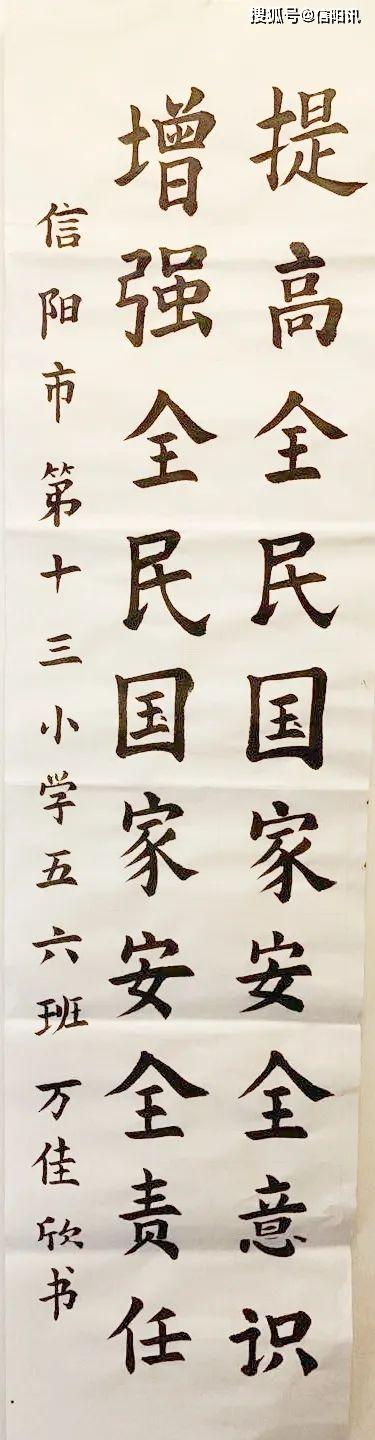 搜狐号@信阳讯
提高全民国家安全意识
增强全民国家安全责任
信阳市第十三小学五六班 万佳欣书